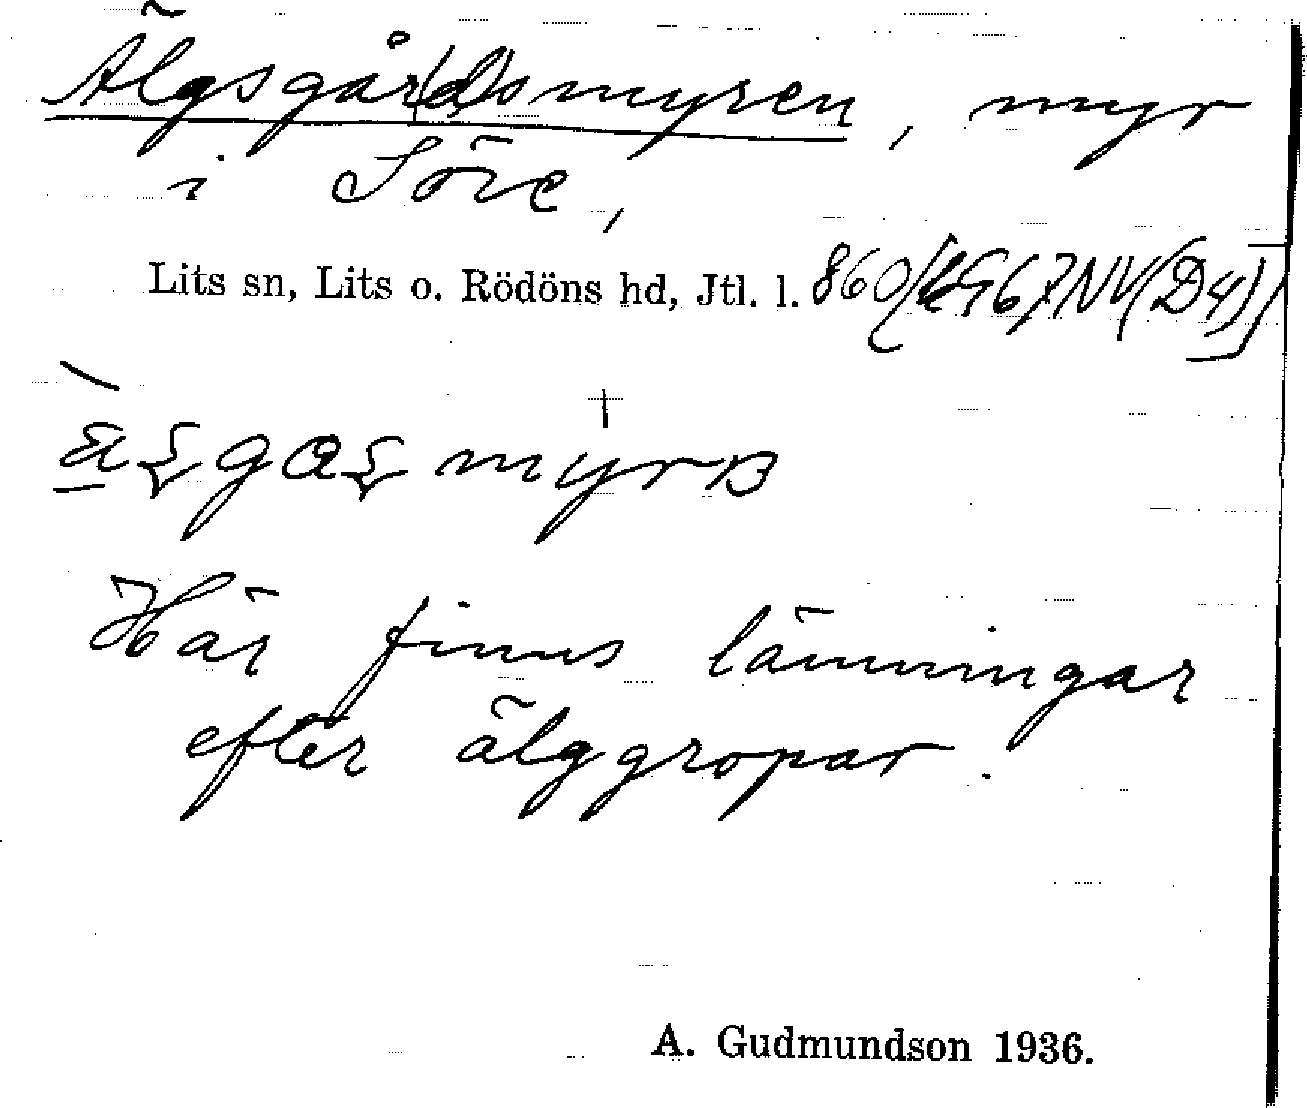 Älgsgår(d)smyren, myr
i Söre,
Lits sn, Lits o. Rödöns hd, Jtl. l. 860
Här finns lämningar
efter älggropar.
A. Gudmundson 1936.